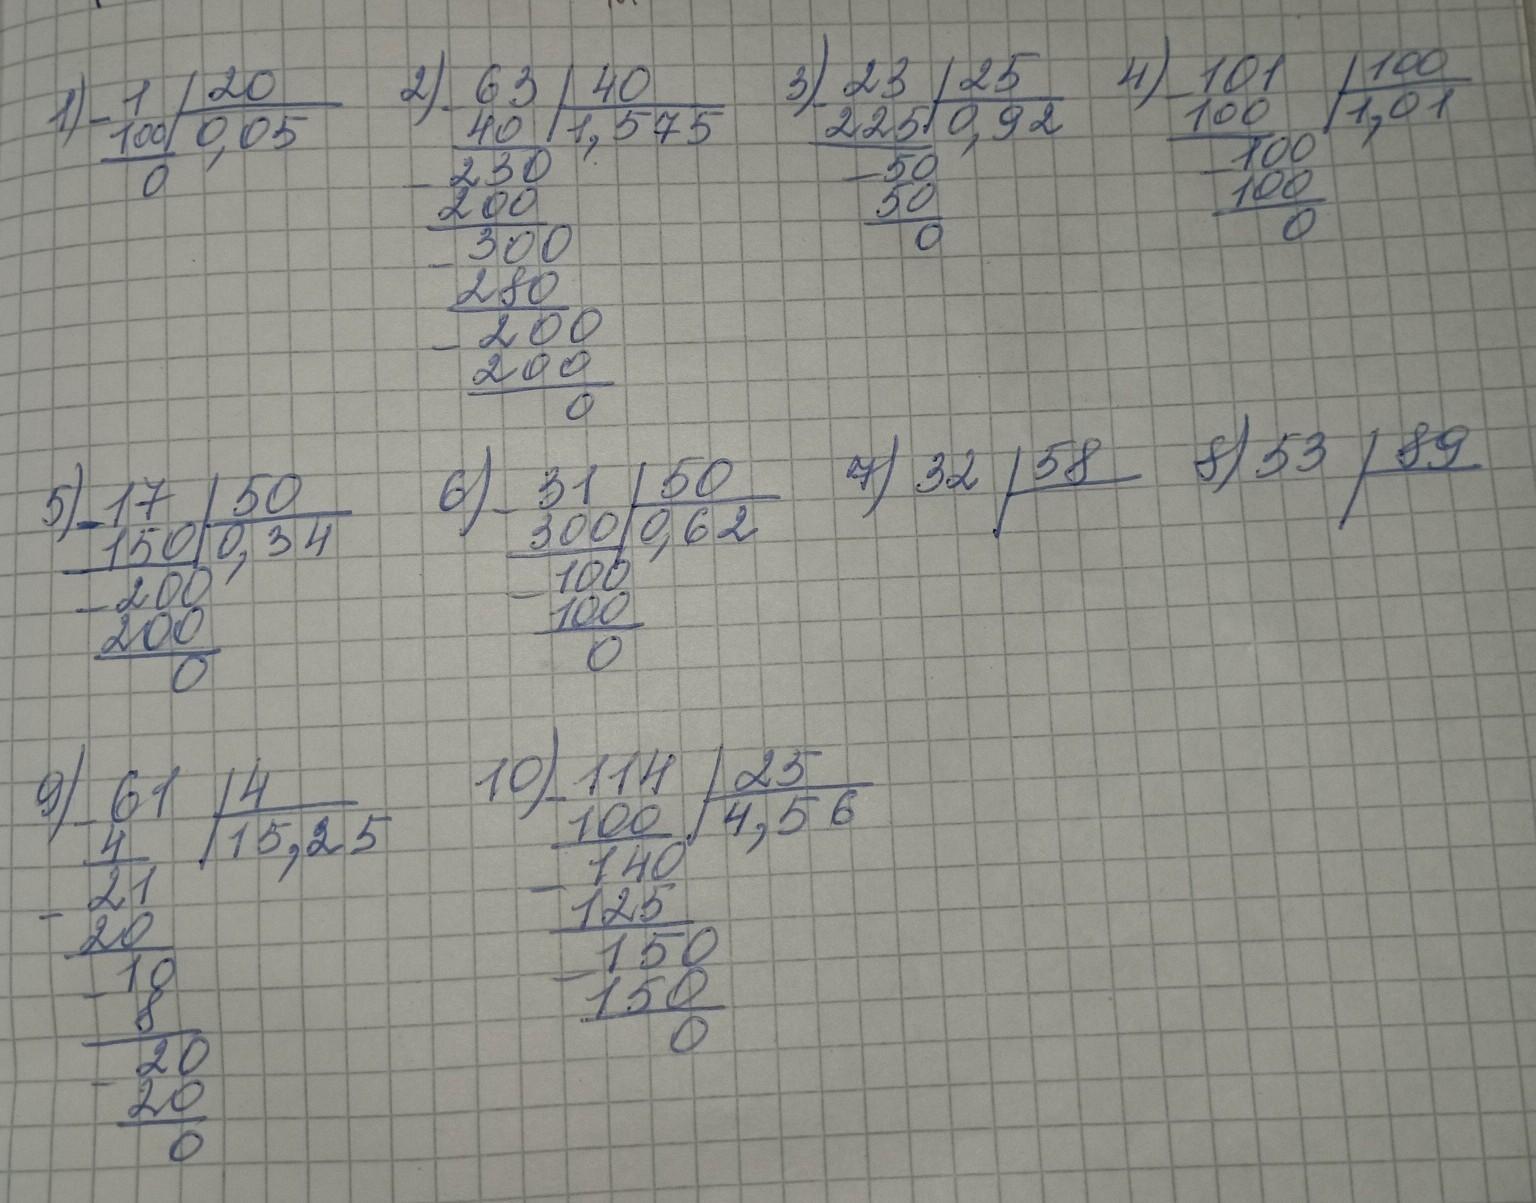 1) - 1 | 20
100 | 0,05
0
2) - 63 | 40
40 | 1,575
- 230
200
- 300
280
- 200
200
0
3) - 23 | 25
225 | 0,92
- 50
50
0
4) - 101 | 100
100 | 1,01
- 100
100
0
5) - 17 | 50
150 | 0,34
- 200
200
0
6) - 31 | 50
300 | 0,62
- 100
100
0
7) 32 | 58
8) 53 | 89
9) - 61 | 4
4 | 15,25
- 21
20
- 10
8
- 20
20
0
10) - 114 | 25
100 | 4,56
- 140
125
- 150
150
0